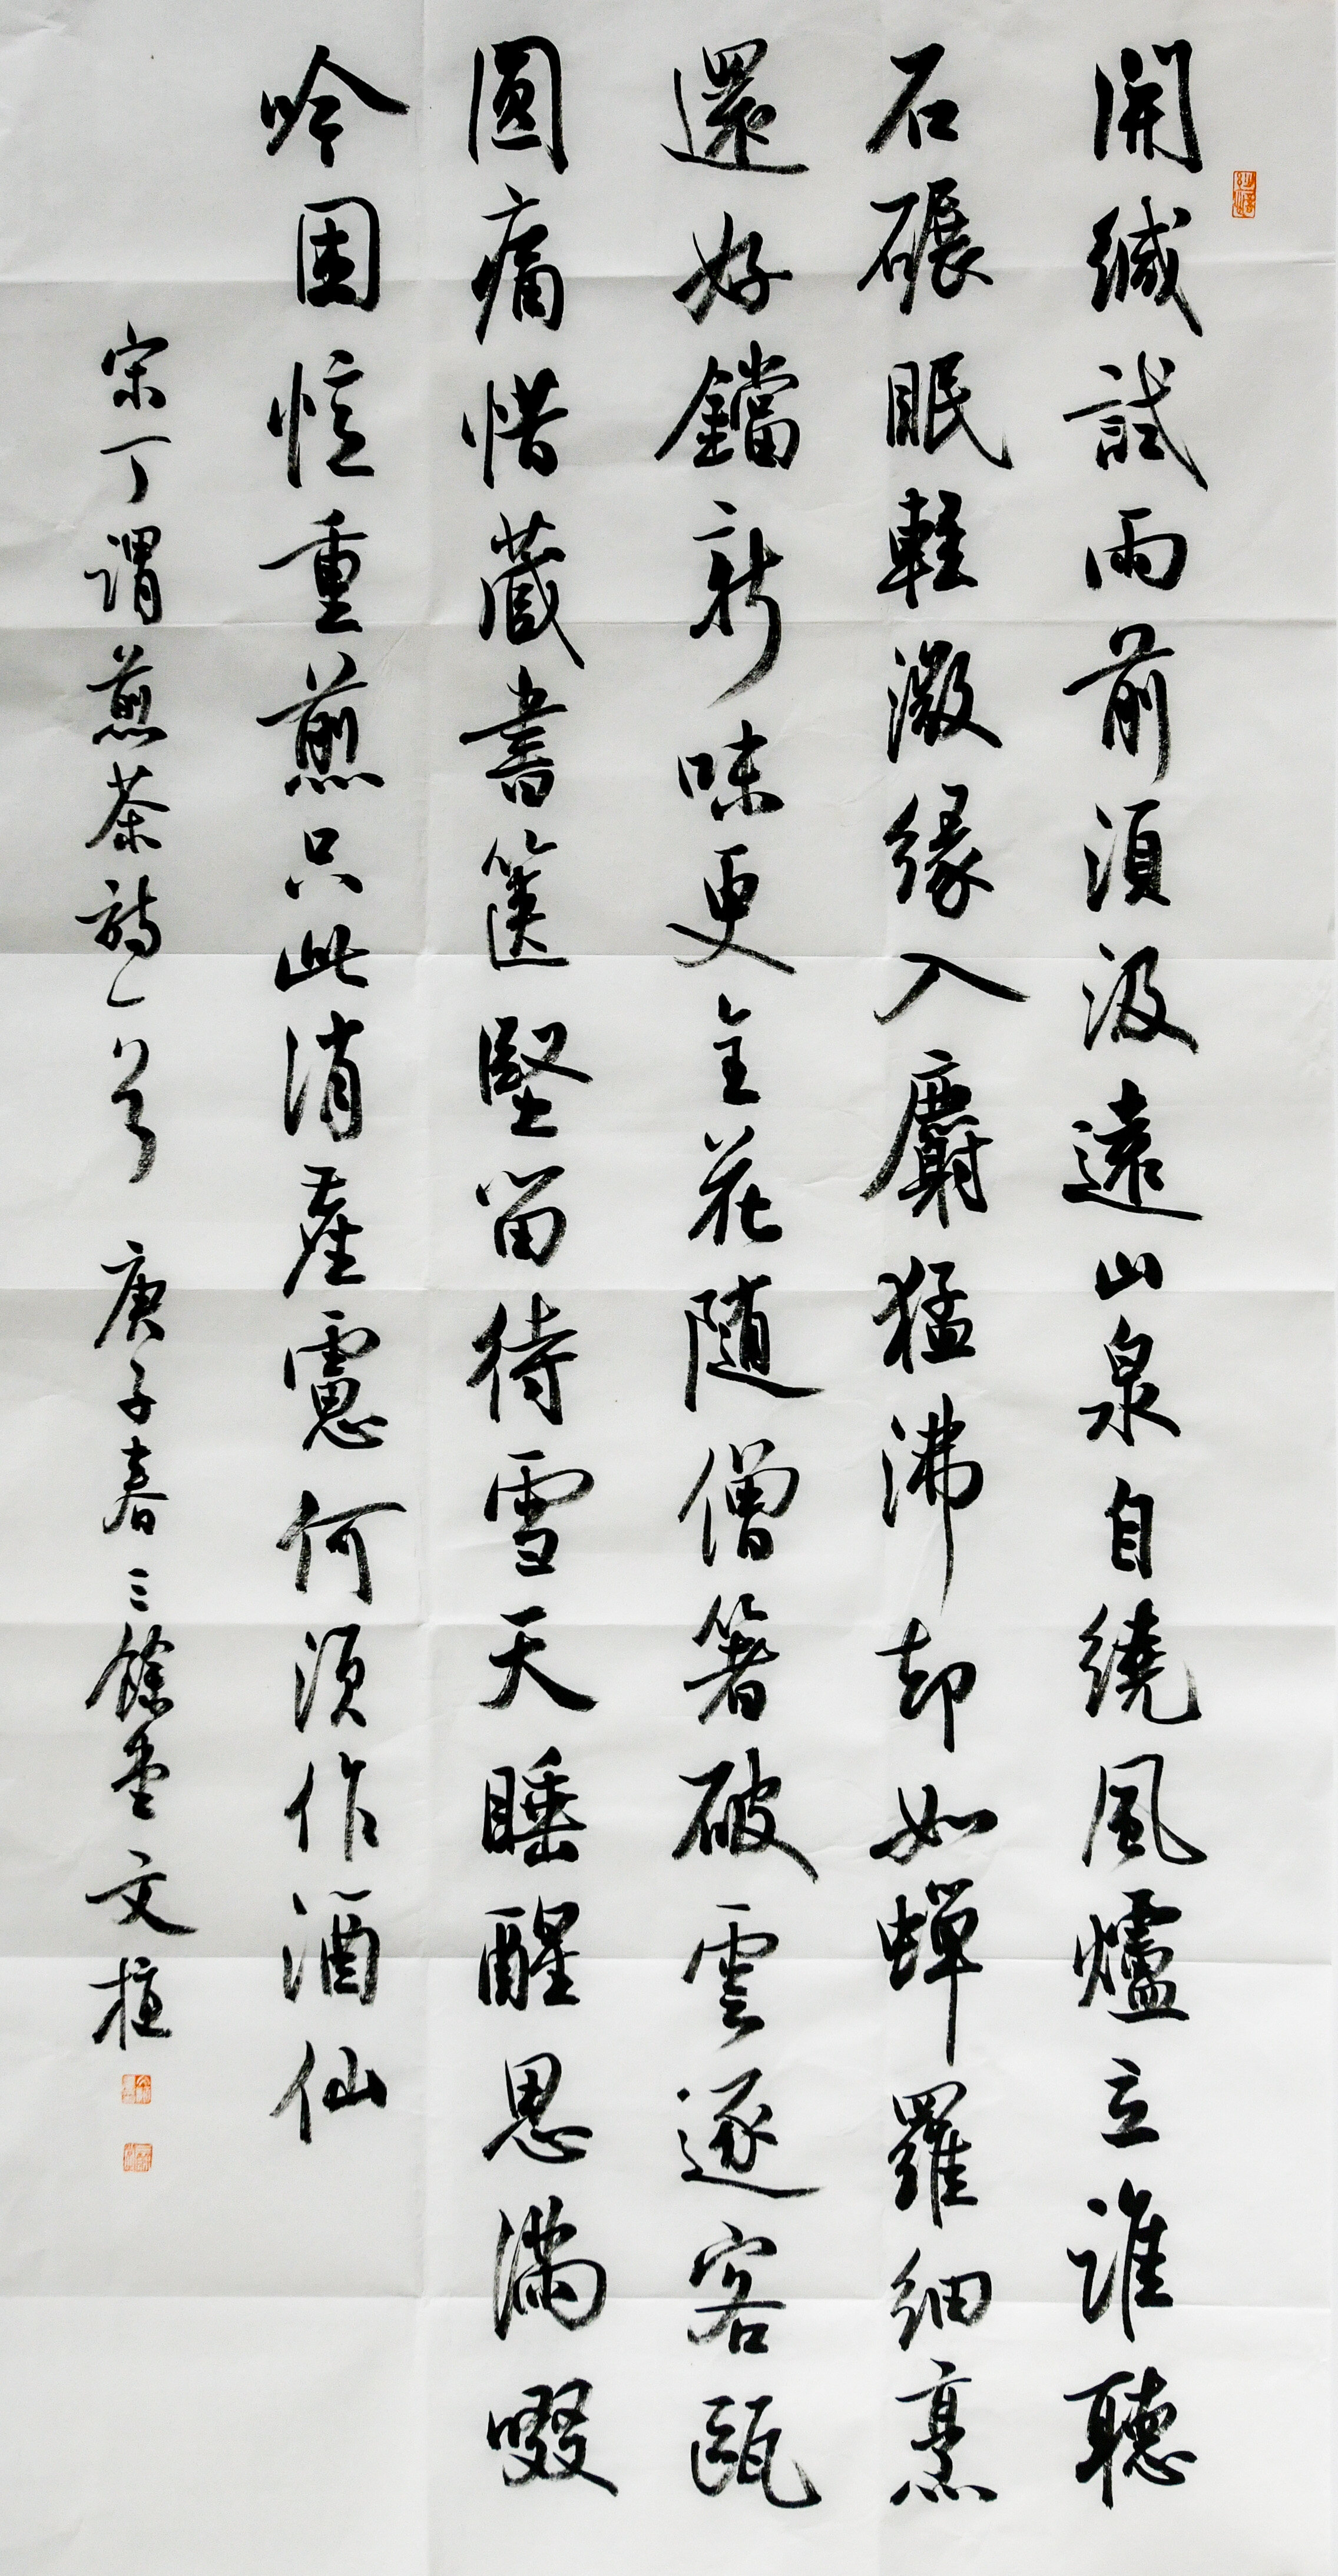 開緘試雨前須汲遠山泉自繞風爐立誰聽
石碾眠輕微緣入麝猛沸却如蟬羅細烹
還好鐺新味更全花隨僧箸破雲逐客甌
圓痛惜藏書篋堅留待雪天睡醒思滿啜
吟困憶重煎只此消塵慮何須作酒仙
宋丁謂煎茶詩一首 庚子春三餘堂文桓